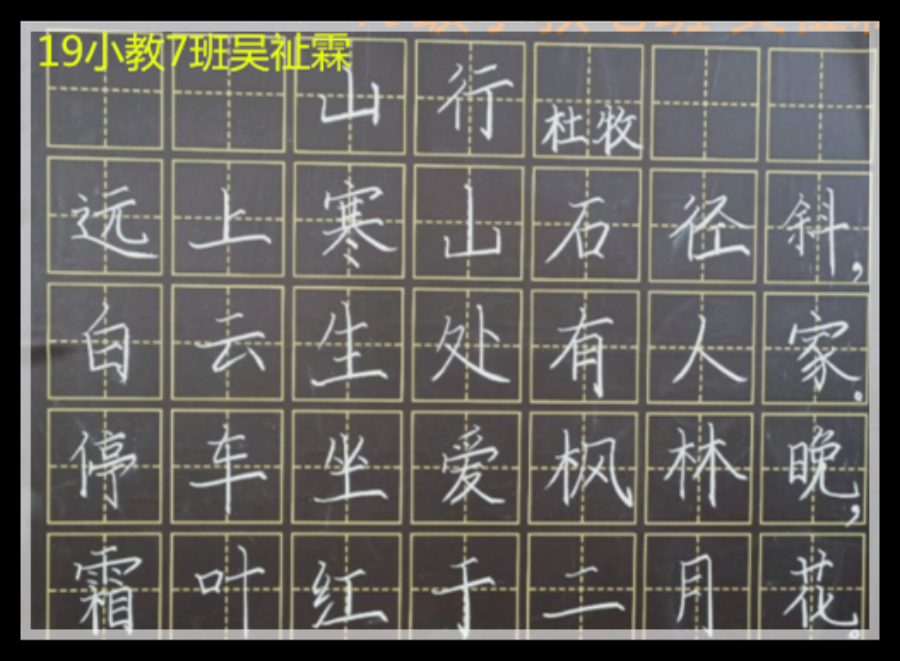 19小教7班吴祉霖
山行
杜牧
远上寒山石径斜,
白云生处有人家.
停车坐爱枫林晚,
霜叶红于二月花.